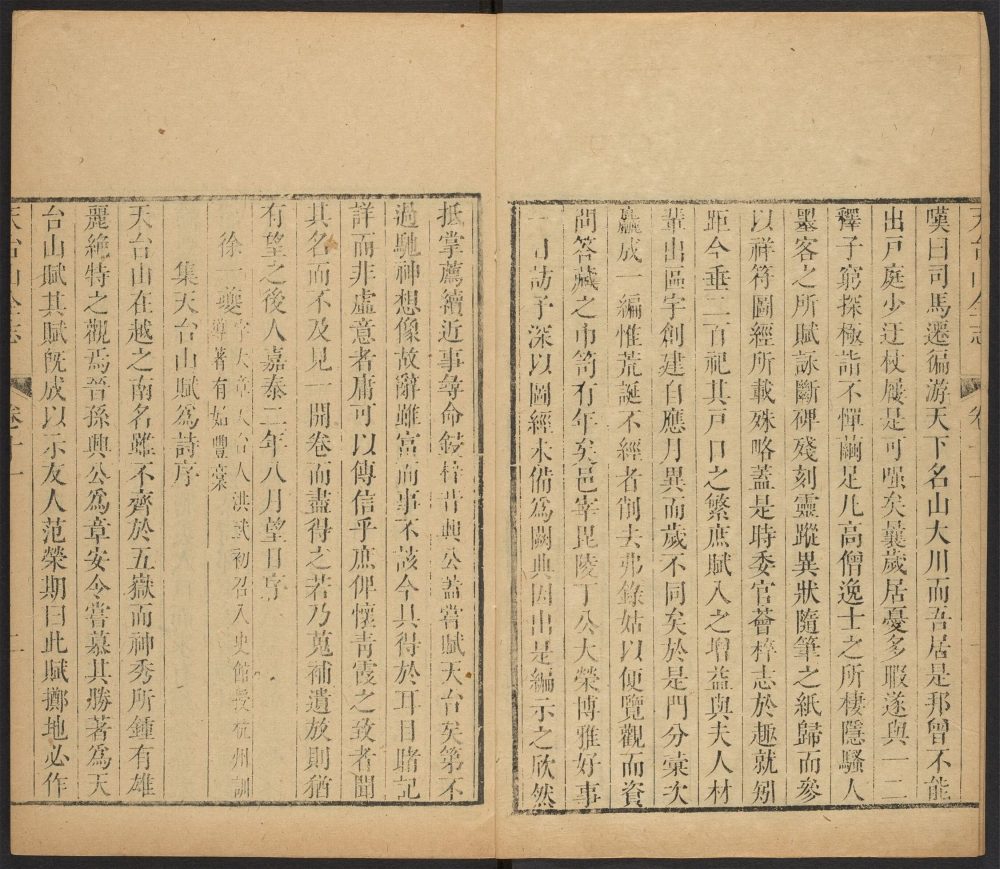 天台山全志 卷十一
嘆曰司馬遷徧游天下名山大川而吾居是邦曾不能
出戸庭少迂杖屨是可嘅矣曩歲居憂多暇遂與一二
釋子窮探極詣不憚繭足凡高僧逸士之所棲隱騷人
墨客之所賦詠斷碑殘刻靈蹤異狀隨筆之紙歸而參
以祥符圖經所載殊略蓋是時委官薈粹志於趣就矧
距今垂二百祀其戸口之繁庶賦入之增益與夫人材
輩出區宇創建自應月異而歲不同矣於是門分彙次
纂成一編惟荒誕不經者削去弗錄姑以便覽觀而資
問答藏之巾笥有年矣邑宰毘陵丁公大榮博雅好事
一日訪予深以圖經未備爲闕典因出是編示之欣然
抵掌薦續近事爭命鋟梓昔興公蓋嘗賦天台矣第不
過馳神想像故辭雖富而事不該今具得於耳目睹記
詳而非虛意者庸可以傳信乎庶俾懷青霞之致者聞
其名而不及見一開卷而盡得之若乃蒐補遺放則猶
有望之後人嘉泰二年八月望日序
徐一夔字大章天台人洪武初召入史館授杭州訓
導著有始豐稾
集天台山賦爲詩序
天台山在越之南名雖不齊於五嶽而神秀所鍾有雄
麗絶特之觀焉晉孫興公爲章安令嘗慕其勝著爲天
台山賦其賦旣成以示友人范榮期曰此賦擲地必作
天台山全志 卷十一 二